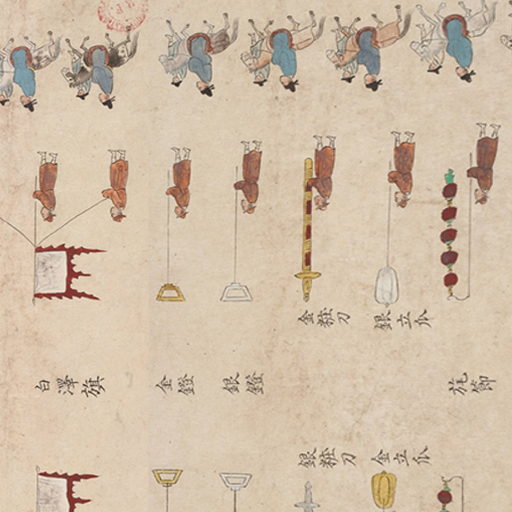 金粧刀
銀立瓜
白澤旗
金鐙
銀鐙
旄節
銀粧刀
金立瓜